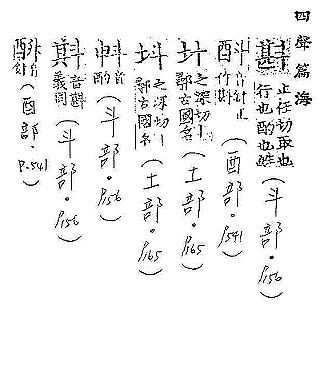 四聲篇海
斟 止任切取也行也酌也益也(斗部·P.156)
酙 音針正作斟(酉部·P.541)
㘰 之深切┃鄩古國名(土部·P.165)
㘰 之深切┃鄩古國名(土部·P.165)
音酌(斗部·P.156)
音斟義同(斗部·P.156)
酙 音針(酉部·P.541)